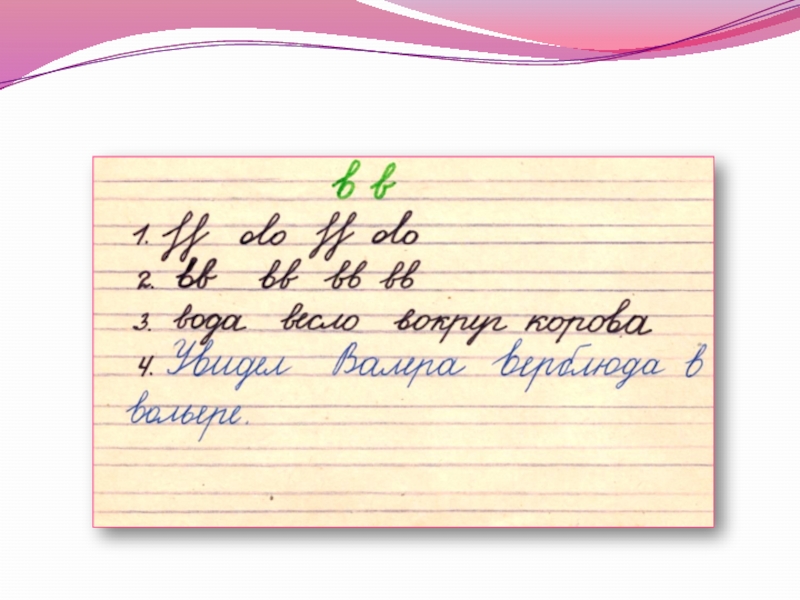 в в
1.
2. вв вв вв вв
3. вода весло вокруг корова
4. Увидел Валера верблюда в
вольере.